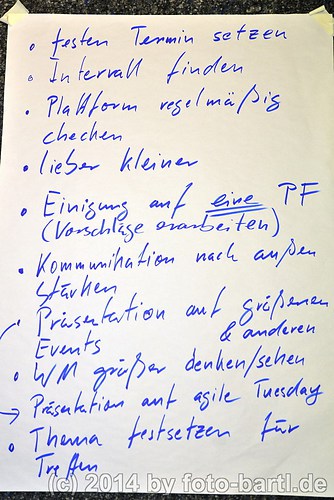 • festen Termin setzen
• Intervall finden
• Plattform regelmäßig
checken
• lieber kleiner
• Einigung auf eine PF
(Vorschläge erarbeiten)
• Kommunikation nach außen
stärken
• Präsentation auf größeren
Events & anderen
• WM größer denken/sehen
→ Präsentation auf agile Tuesday
• Thema festsetzen für
Treffen
(c) 2014 by foto-bartl.de